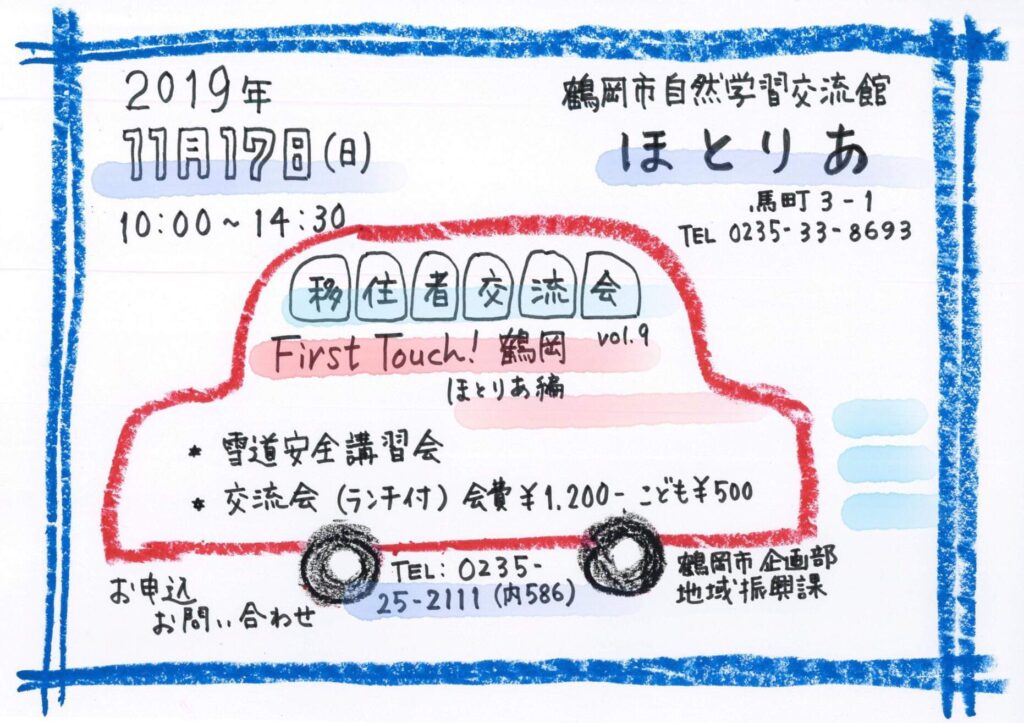 2019年
11月17日(日)
10:00～14:30
鶴岡市自然学習交流館
ほとりあ
馬町3-1
TEL 0235-33-8693
移住者交流会
First Touch! 鶴岡 vol.9
ほとりあ編
* 雪道安全講習会
* 交流会(ランチ付)会費¥1.200- こども¥500
お申込
お問い合わせ
TEL: 0235-
25-2111(内586)
鶴岡市企画部
地域振興課